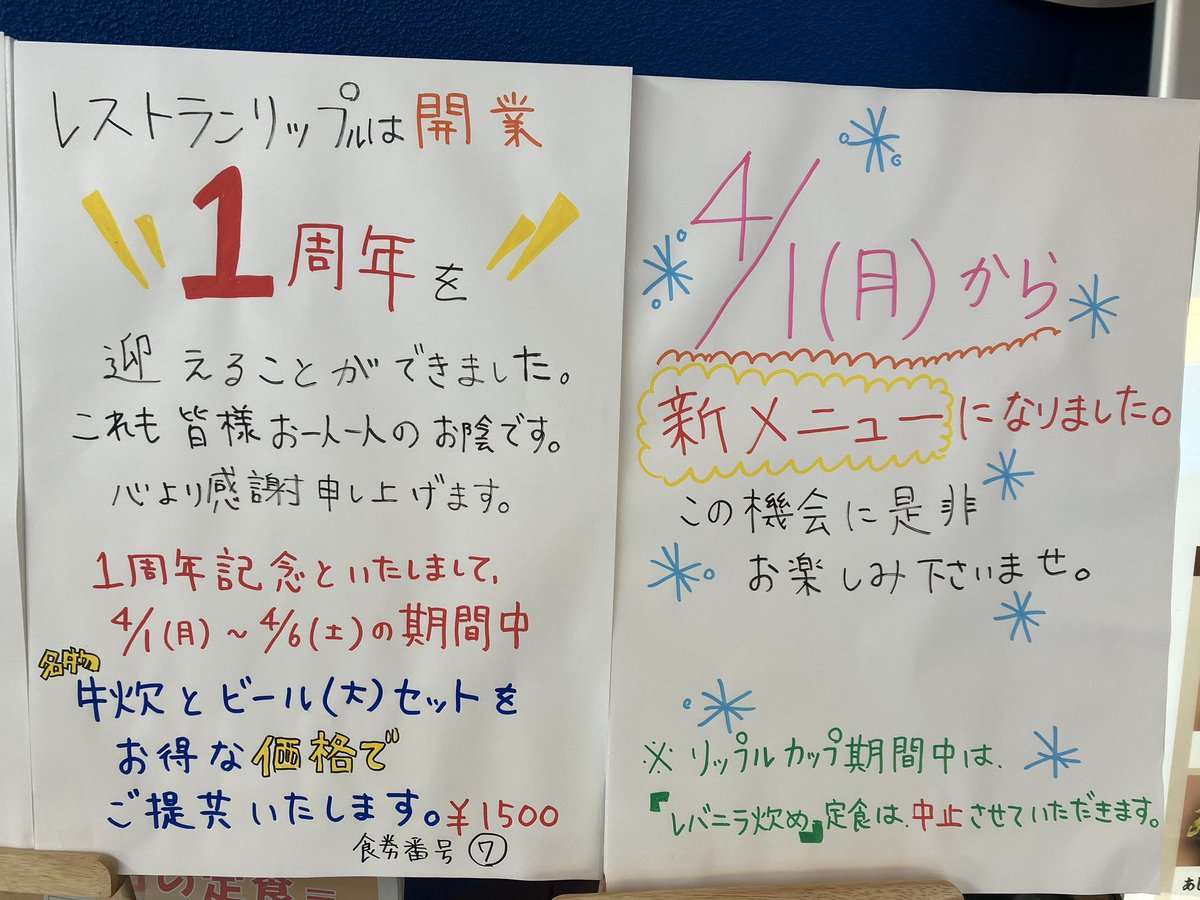 レストランリップルは開業
1周年を
迎えることができました。
これも皆様お一人一人のお陰です。
心より感謝申し上げます。
1周年記念といたしまして、
4/1(月)～4/6(土)の期間中
名物
牛炊とビール(大)セットを
お得な価格で
ご提供いたします。¥1500
食券番号⑦
4/1(月)から
新メニューになりました。
この機会に是非
お楽しみ下さいませ。
※リップルカップ期間中は、
『レバニラ炒め』定食は、中止させていただきます。
の定食